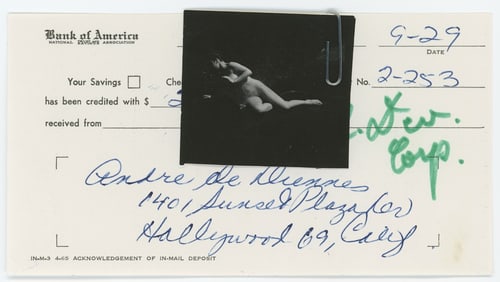 Bank of America
NATIONAL SAVINGS ASSOCIATION
9-29
DATE
Your Savings
No. 2-253
has been credited with $
received from
Dev.
Corp.
Andre de Dienes
1401 Sunset Plaza Dr
Hollywood 69, Calif
4-65 ACKNOWLEDGEMENT OF IN-MAIL DEPOSIT